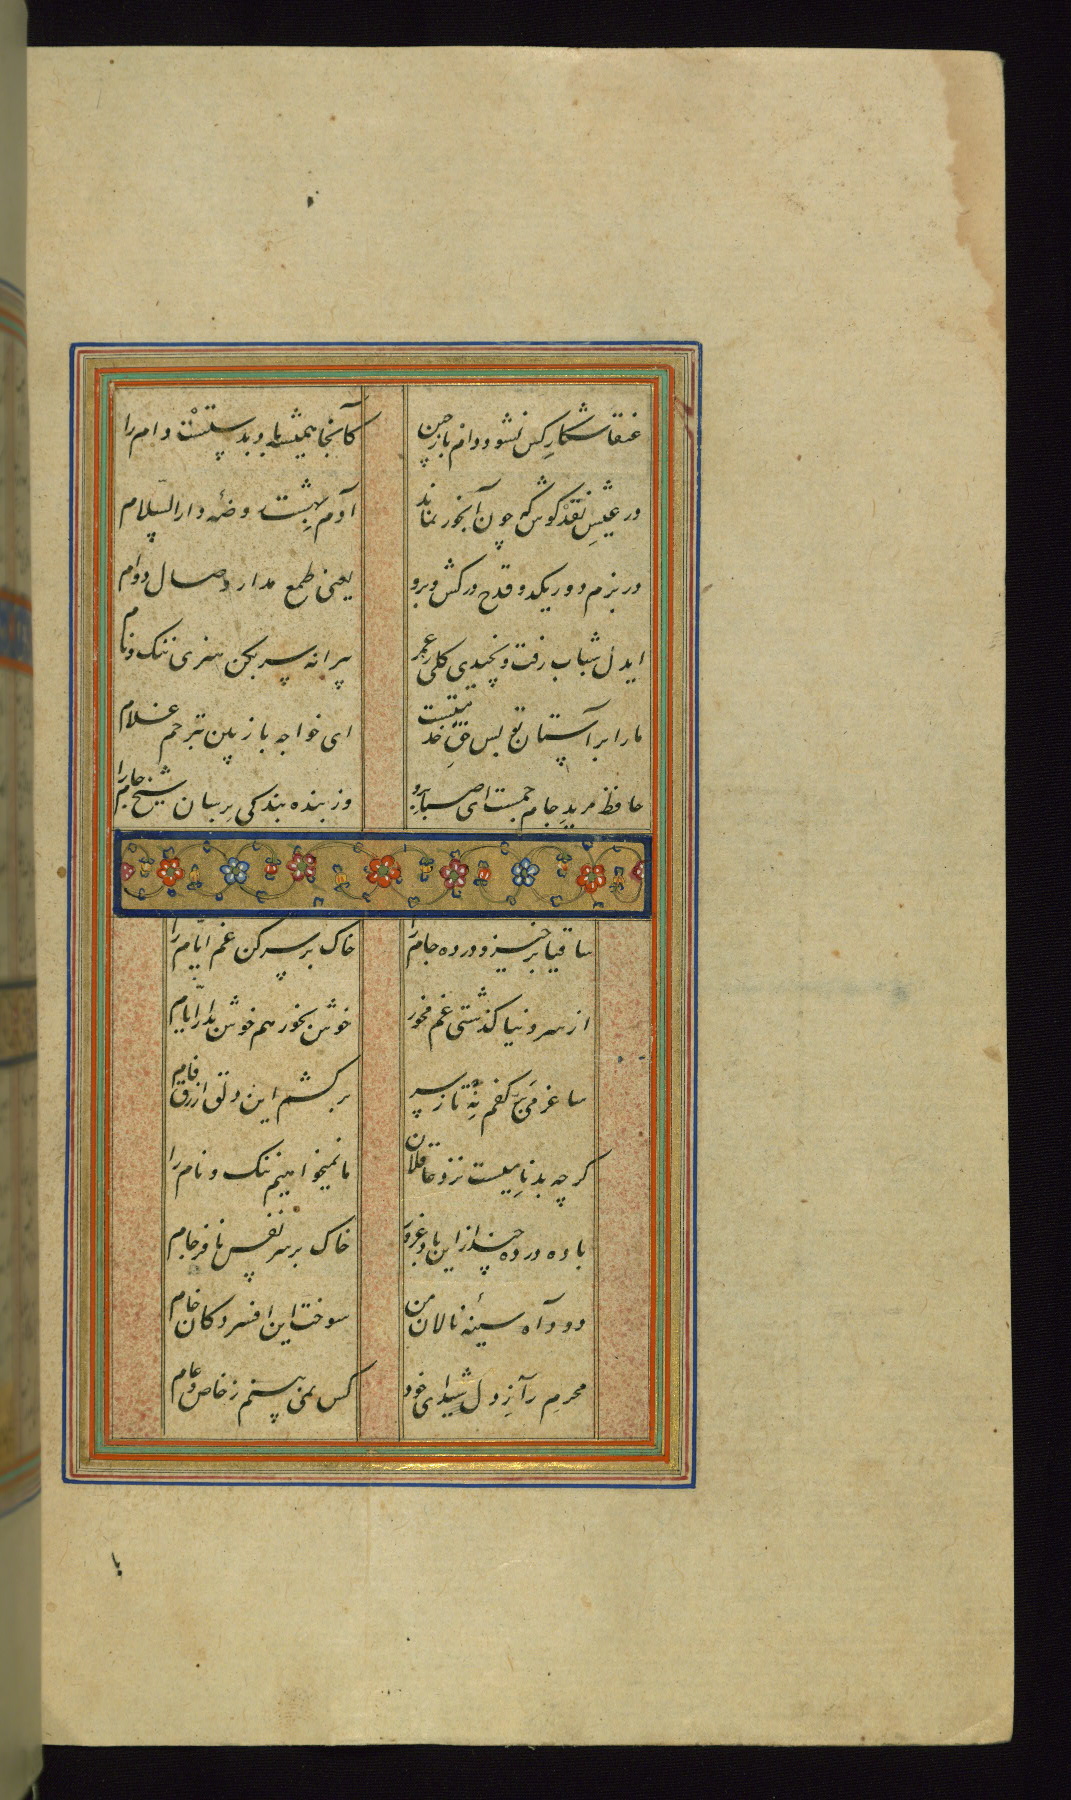 عنقا شکار کس نشود دام باز چین
کآنجا همیشه باد بدستست دام را
در عیش نقد کوش که چون آبخور نماند
آدم بهشت روضه دار السلام
در بزم دور یکدو قدح درکش و برو
یعنی طمع مدار وصال دوام
ایدل شباب رفت و نچیدی کلی ز عمر
پیرانه سر بکن هنری ننک و نام
ما را بر آستان تو بس حق خدمتست
ای خواجه باز بین بترحم غلام
حافظ مرید جام جمست ای صبا برو
وز بنده بندکی برسان شیخ جام را
ساقیا برخیز و درده جام را
خاک بر سر کن غم ایام را
از سر دنیا کذشتی غم مخور
خوش بخور هم خوش بدار ایام
ساغر می بر کفم نه تا ز سر
برکشم این دلق ازرق فام
کرچه بدنامیست نزد عاقلان
ما نمیخواهیم ننک و نام را
باده درده چند ازین باد غرور
خاک بر سر نفس نافرجام
دود آه سینه نالان من
سوخت این افسردکان خام
محرم راز دل شیدای خود
کس نمی بینم ز خاص و عام
با